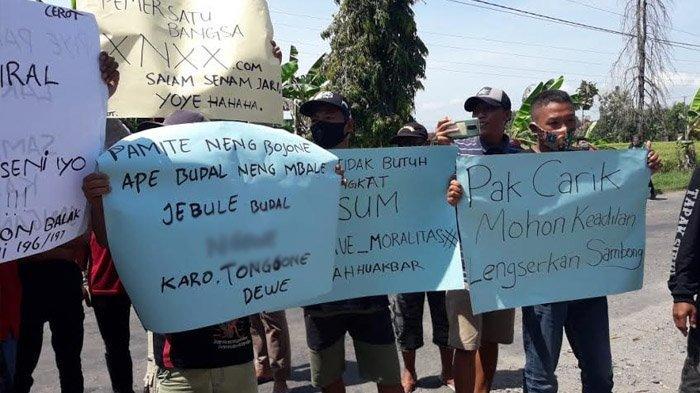 CEROT
IRAL
SENI IYO
!!!
ON BALAK
I 196/197
PEMERSATU
BANGSA
XNXX.com
SALAM SENAM JARI
YOYE HAHAHA.
PAMITE NENG BOJONE
APE BUDAL NENG MBALE
JEBULE BUDAL
KARO. TONGGONE
DEWE
TIDAK BUTUH
GKAT
SUM
AVE_MORALITAS
AHHUAKBAR
Pak Carik
Mohon Keadilan
Lengserkan Sambong
TAPAK SU